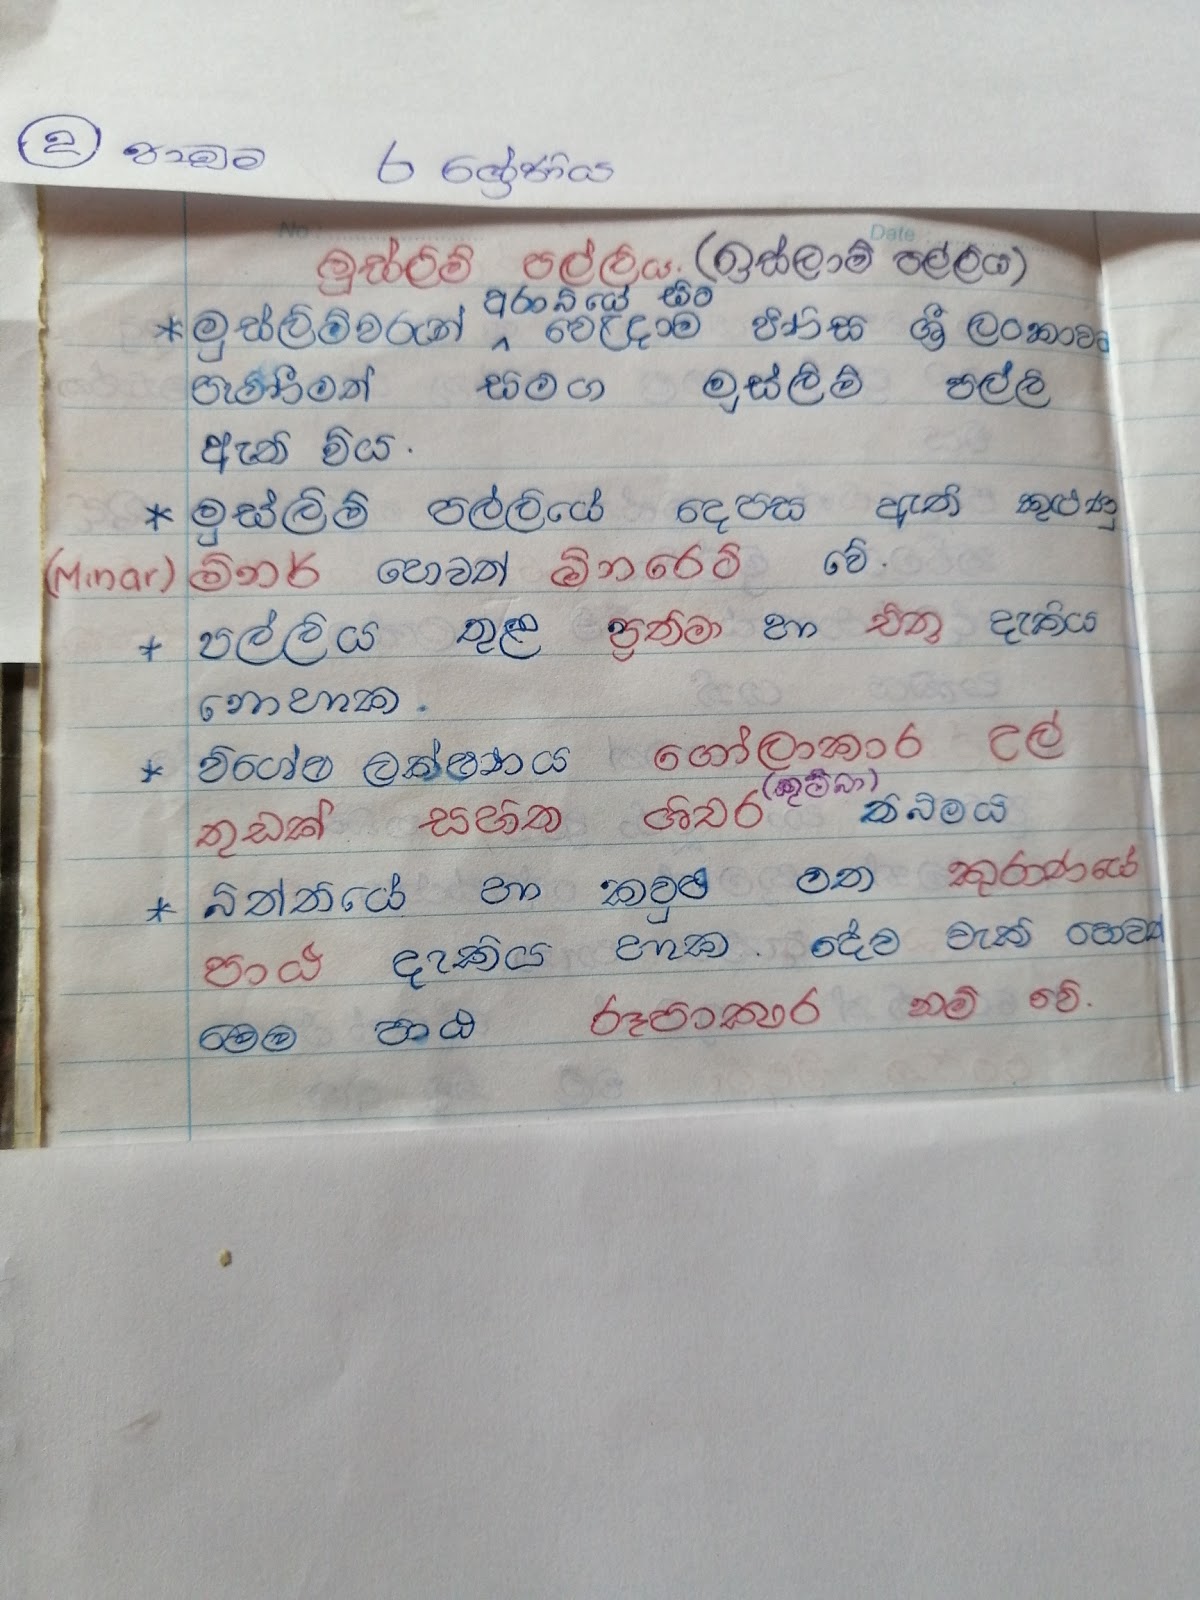 ② පාඩම 6 ශ්‍රේණිය
No Date
මුස්ලිම් පල්ලිය. (ඉස්ලාම් පල්ලිය)
අරාබියේ සිට
* මුස්ලිම්වරුන් ^ වෙළඳාම පිණිස ශ්‍රී ලංකාවට
පැමිණීමත් සමග මුස්ලිම් පල්ලි
ඇති විය.
* මුස්ලිම් පල්ලියේ දෙපස ඇති කුළුණු
(Minar) මිනර් හෙවත් මිනරෙට් වේ.
* පල්ලිය තුළ ප්‍රතිමා හා චිත්‍ර දැකිය
නොහැක.
* විශේෂ ලක්ෂණය ගෝලාකාර උල්
තුඩක් සහිත ශිඛර (කුම්බා) තිබීමයි
* බිත්තියේ හා කවුළු මත කුරාණයේ
පාඨ දැකිය හැක. දේව වැකි හෙවත්
මෙම පාඨ රූපාක්ෂර නම් වේ.